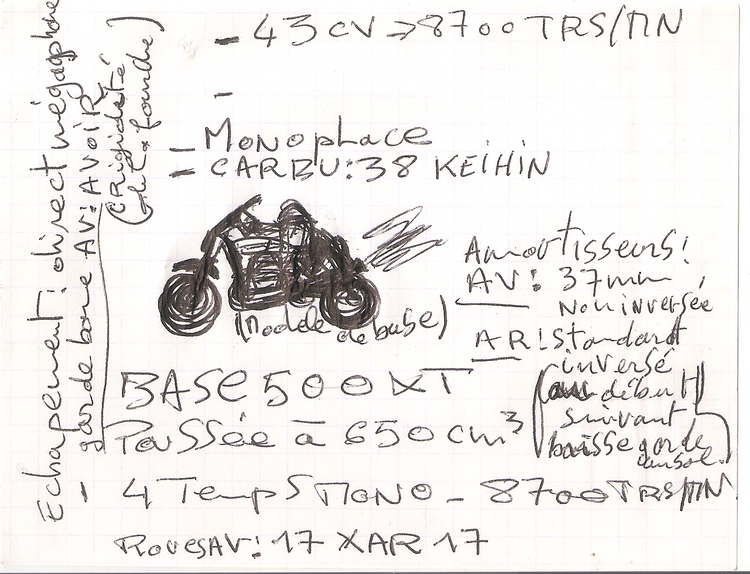 - 43 CV → 8700 TRS/MN
-
- Monoplace
- CARBU: 38 KEIHIN
Echapement: direct mégaphone
garde boue AV: AVOIR
(Rigidité
fourche)
Amortisseurs:
AV: 37mm
Non inversée
AR: Standart
inversé
(au début
suivant
baisse garde
au sol.)
(Modèle de base)
BASE 500 XT
Poussée à 650 cm³
- 4 Temps MONO - 8700 TRS/MN
Roues AV: 17 X AR 17